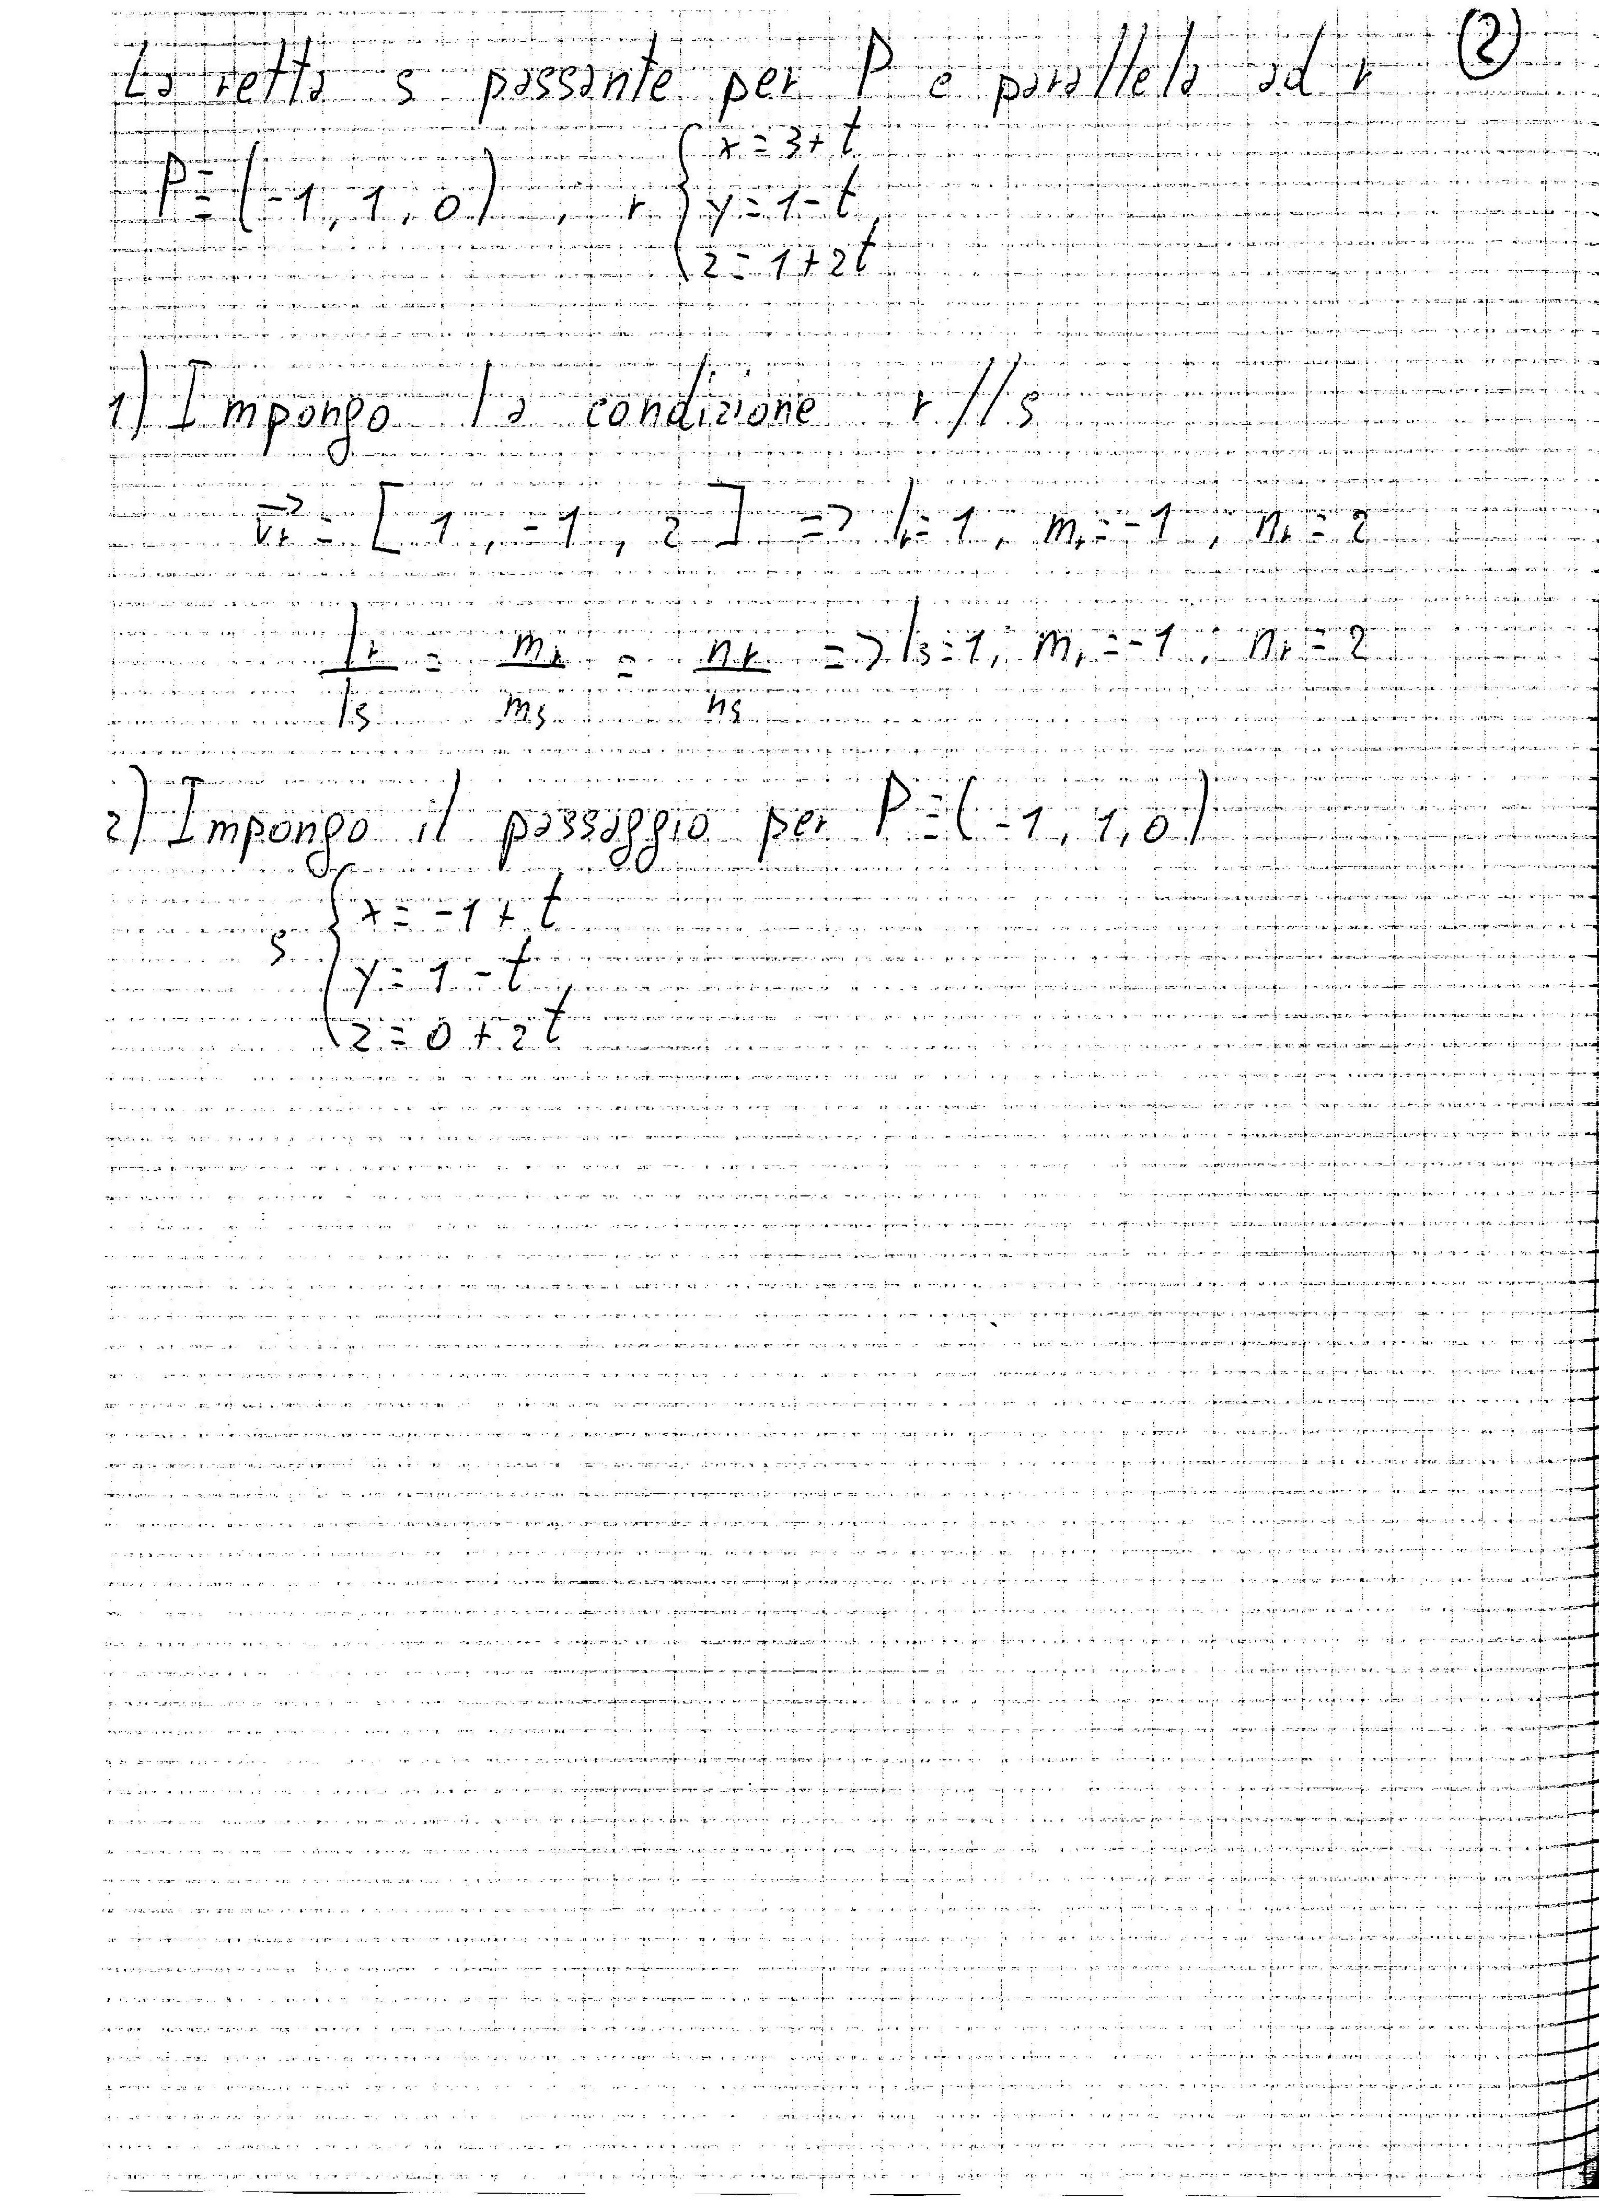 La retta s passante per P e parallela ad r ②
P ≡ (-1, 1, 0) , r { x = 3 + t
y = 1 - t
z = 1 + 2t
1) Impongo la condizione r // s
v⃗r = [ 1 , -1 , 2 ] => lr = 1, mr = -1 ; nr = 2
lr/ls = mr/ms = nr/ns => ls = 1, mr = -1 ; nr = 2
2) Impongo il passaggio per P ≡ (-1, 1, 0)
s { x = -1 + t
y = 1 - t
z = 0 + 2t